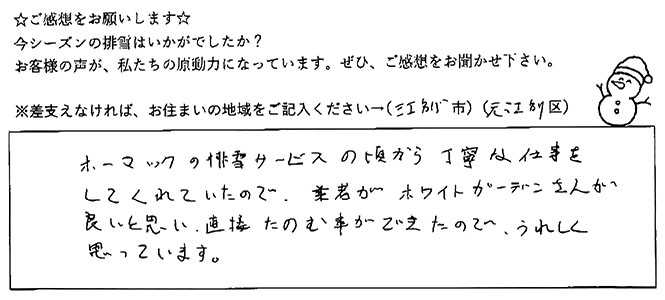 ☆ご感想をお願いします☆
今シーズンの排雪はいかがでしたか？
お客様の声が、私たちの原動力になっています。ぜひ、ご感想をお聞かせ下さい。
※差支えなければ、お住まいの地域をご記入ください→(江別市) (元江別区)
ホーマックの排雪サービスの頃から丁寧な仕事を
してくれていたので、業者がホワイトガーデンさんが
良いと思い、直接たのむ事ができたので、うれしく
思っています。